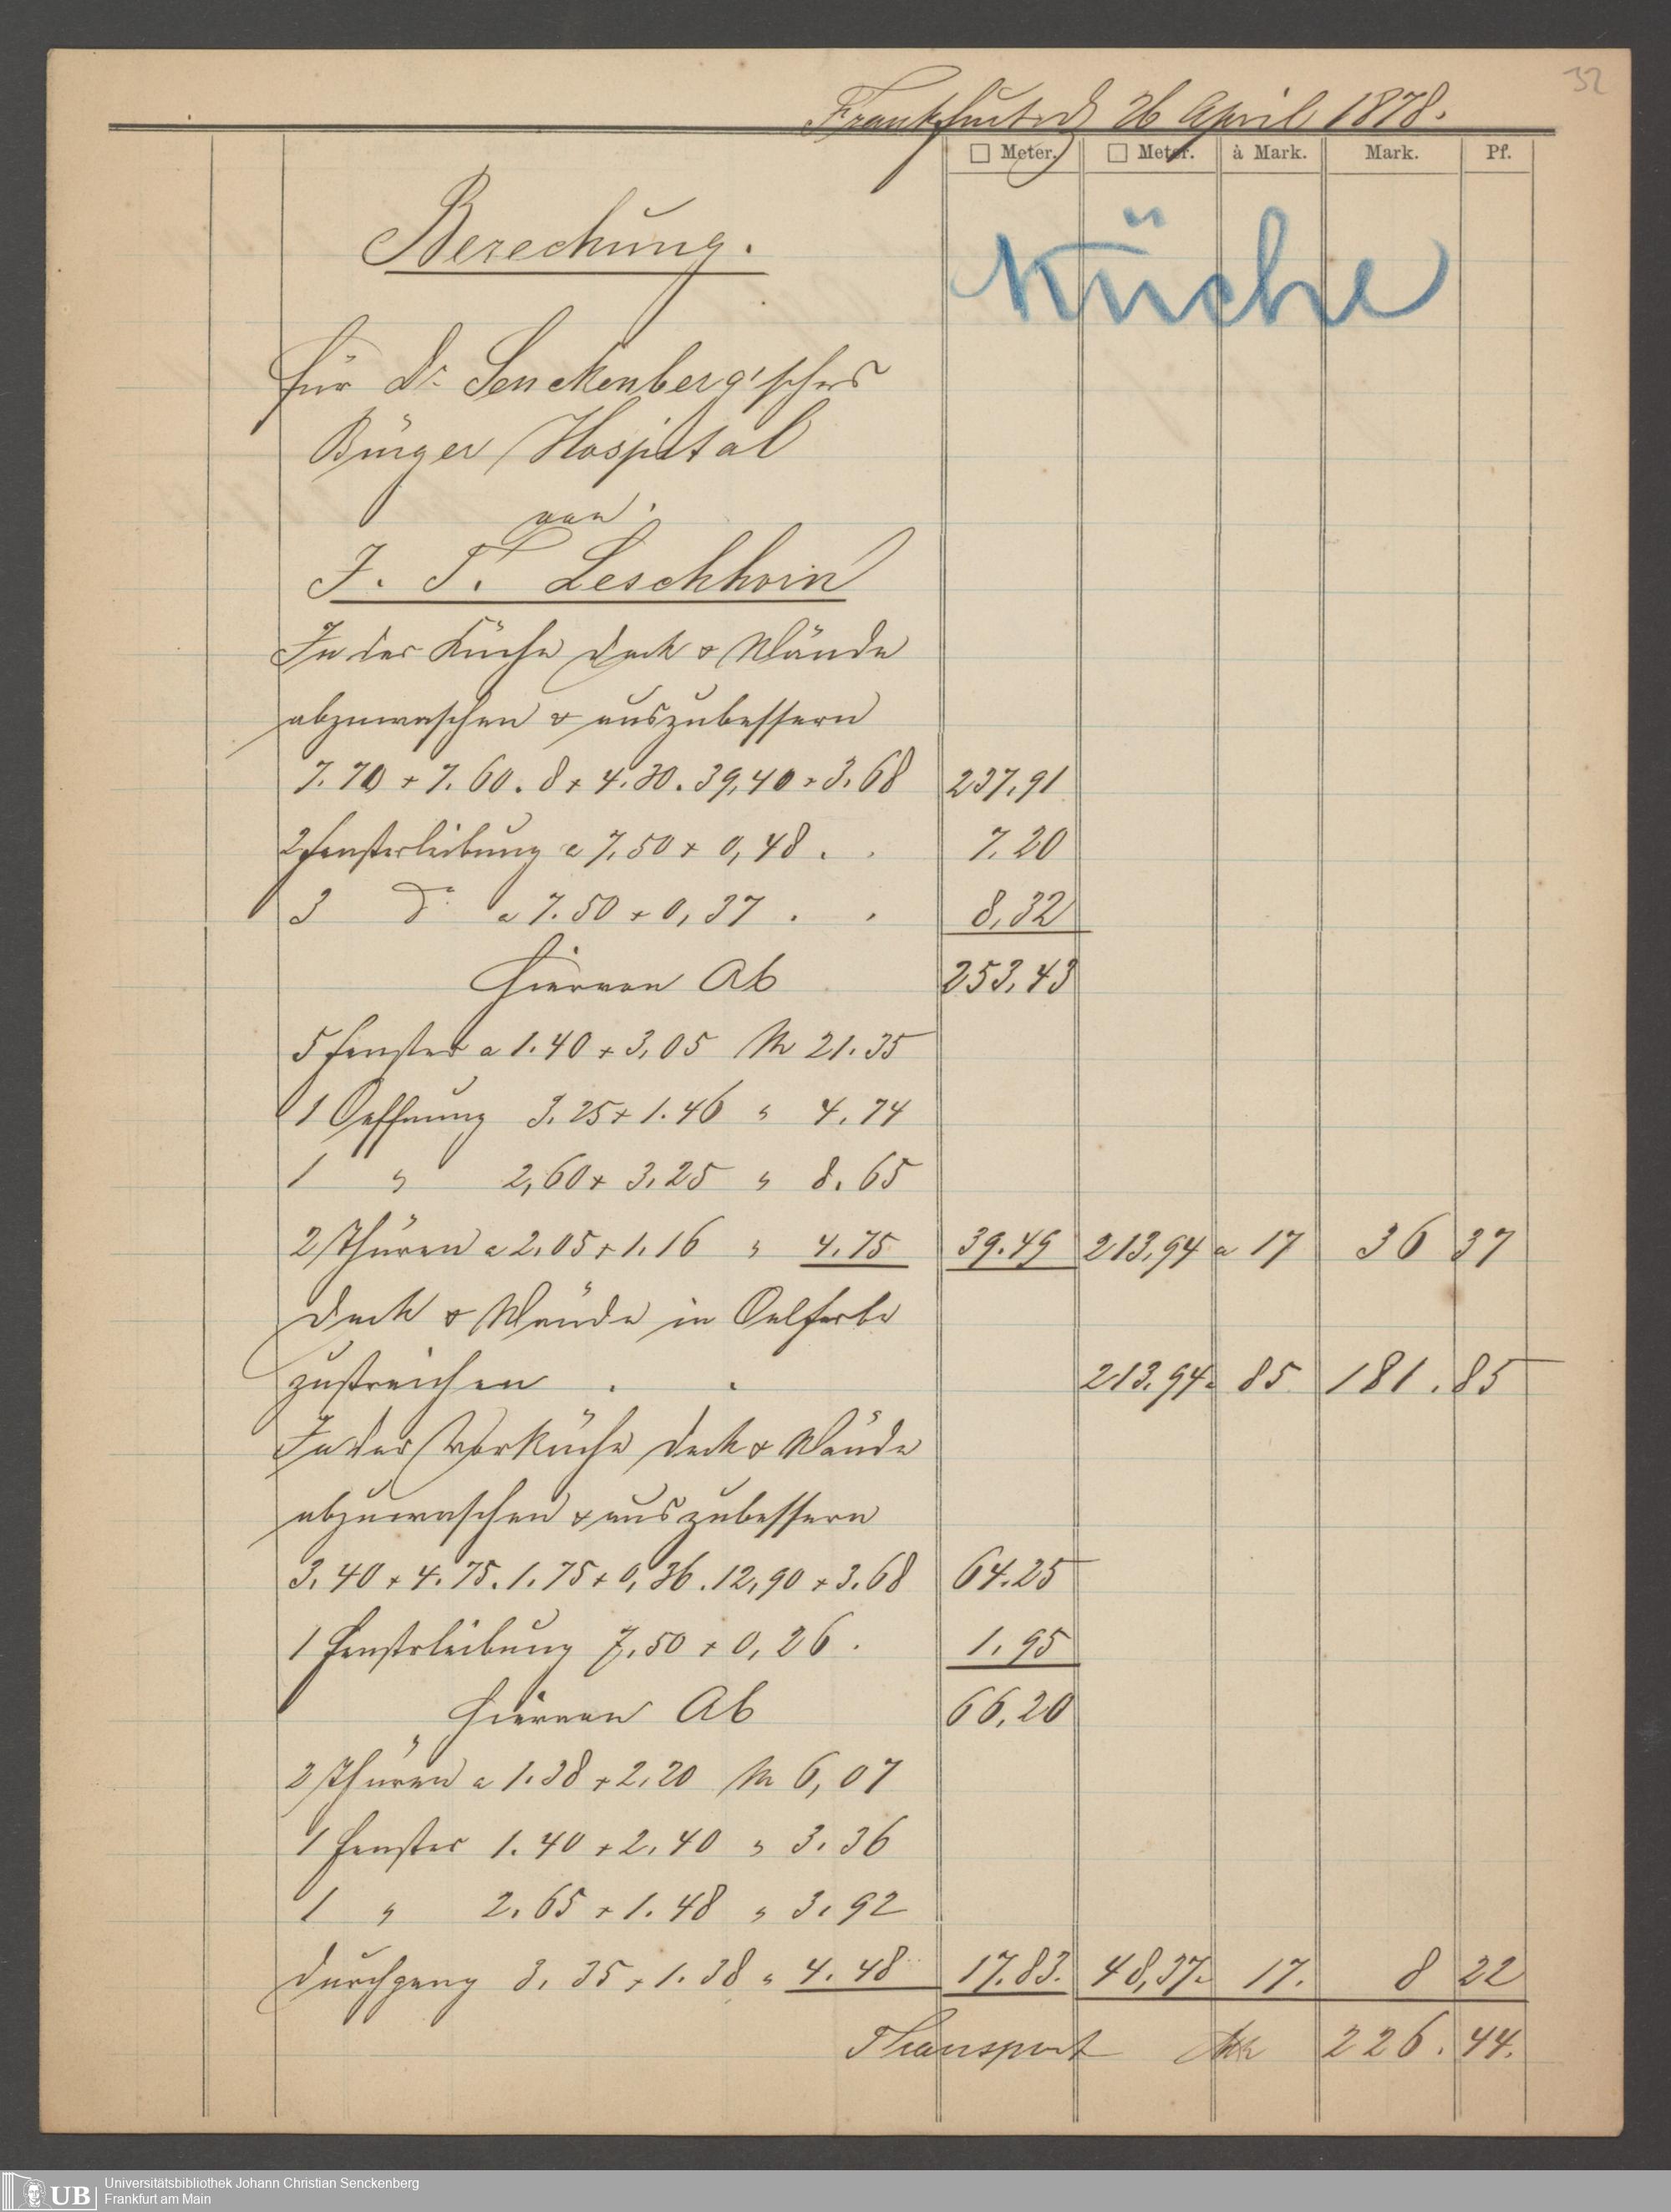 32
Frankfurt d 26 April 1878.
□ Meter. □ Meter. à Mark. Mark. Pf.
Berechung.
Küche
für Dr. Senckenberg'sches
Bürger Hospital
von
J. T. Leschhorn
In der Küche Deck & Wände
abzuwaschen & auszubessern
7.70 + 7.60. 8 + 4.30. 39,40 + 3.68 237,91
2 Fensterleibung a 7,50 + 0,48 . . 7.20
3 do a 7.50 + 0,37 . . 8,32
Hiervon Ab 253,43
5 Fenster a 1.40 + 3,05 M 21.35
1 Oeffnung 3.25 + 1.46 " 4.74
1 " 2,60 + 3.25 " 8.65
2 Thüren a 2.05 + 1.16 " 4.75 39.49 213,94 a 17 36 37
Deck & Wände in Oelfarbe
zustreichen . . 213.94 a 85 181.85
In der Vorküche Deck & Wände
abzuwaschen & auszubessern
3.40 + 4.75. 1.75 + 0,36. 12,90 + 3.68 64.25
1 Fensterleibung 7,50 + 0,26 . 1.95
Hiervon Ab 66,20
2 Thüren a 1.38 + 2.20 M 6,07
1 Fenster 1.40 + 2.40 " 3.36
1 " 2.65 + 1.48 " 3.92
Durchgang 3.35 + 1.38 " 4.48 17.83. 48,37 a 17. 8 22
Transport Mk 226.44.
UB Universitätsbibliothek Johann Christian Senckenberg
Frankfurt am Main